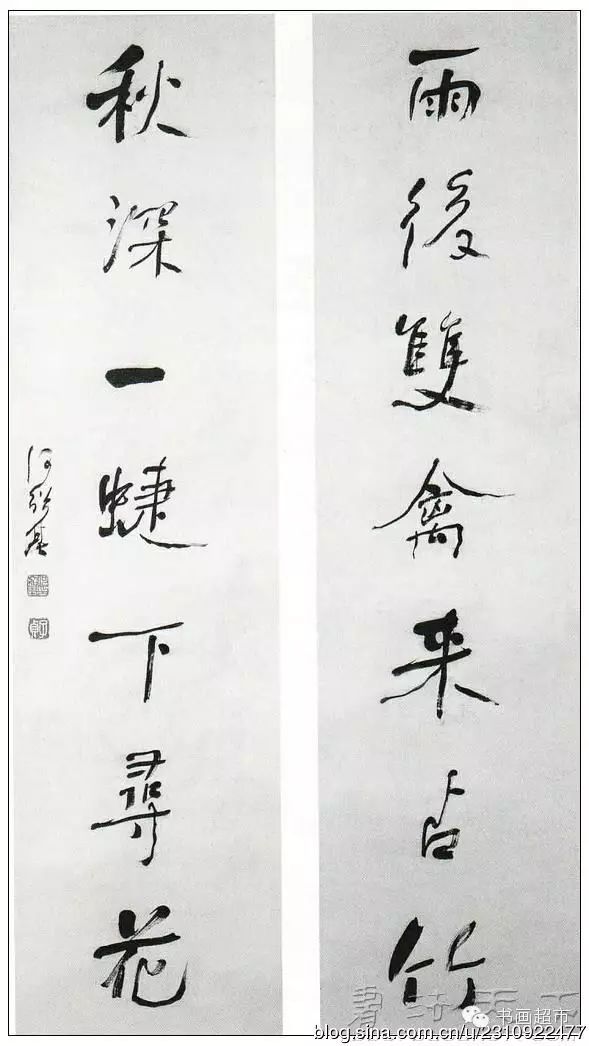 雨後雙禽来占竹
秋深一蜨下尋花
何紹基
书画超市
blog.sina.com.cn/u/2310922477